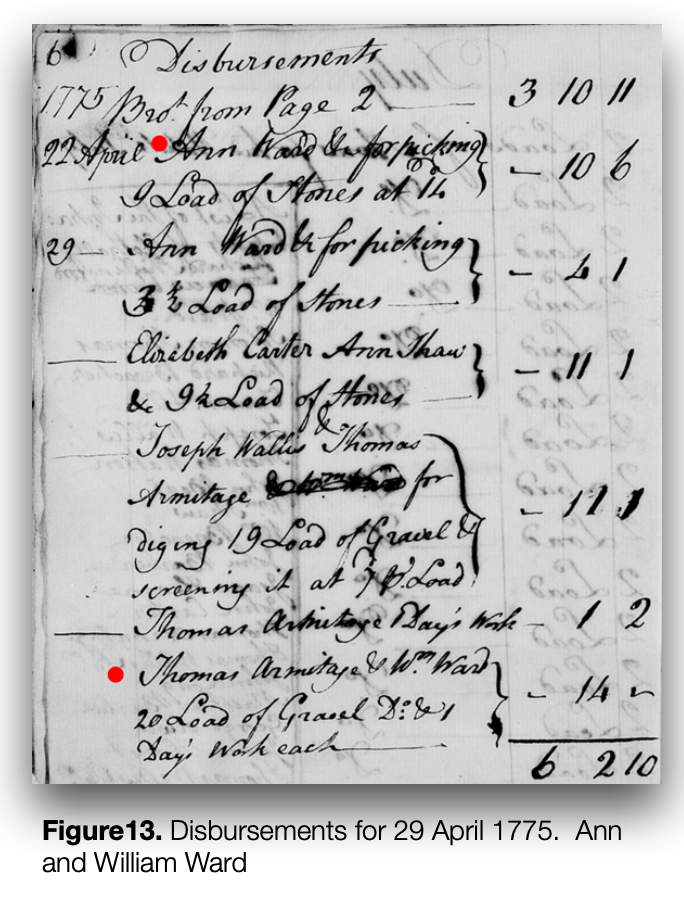 6 Disbursements
1775 Bro.t from Page 2 3 10 11
22 April Ann Ward & for picking
9 Load of Stones at 14 - 10 6
29 - Ann Ward & for picking
3 ½ Load of Stones - 4 1
Elizabeth Carter Ann Shaw
& 9½ Load of Stones - 11 1
Joseph Wallis & Thomas
Armitage for
diging 19 Load of Gravel &
screening it at 7 P. Load - 11 1
Thomas Armitage 1 Day's Work - 1 2
Thomas Armitage & Wm Ward
20 Load of Gravel Do. & 1
Day's Work each - 14 -
6 2 10
Figure13. Disbursements for 29 April 1775. Ann
and William Ward